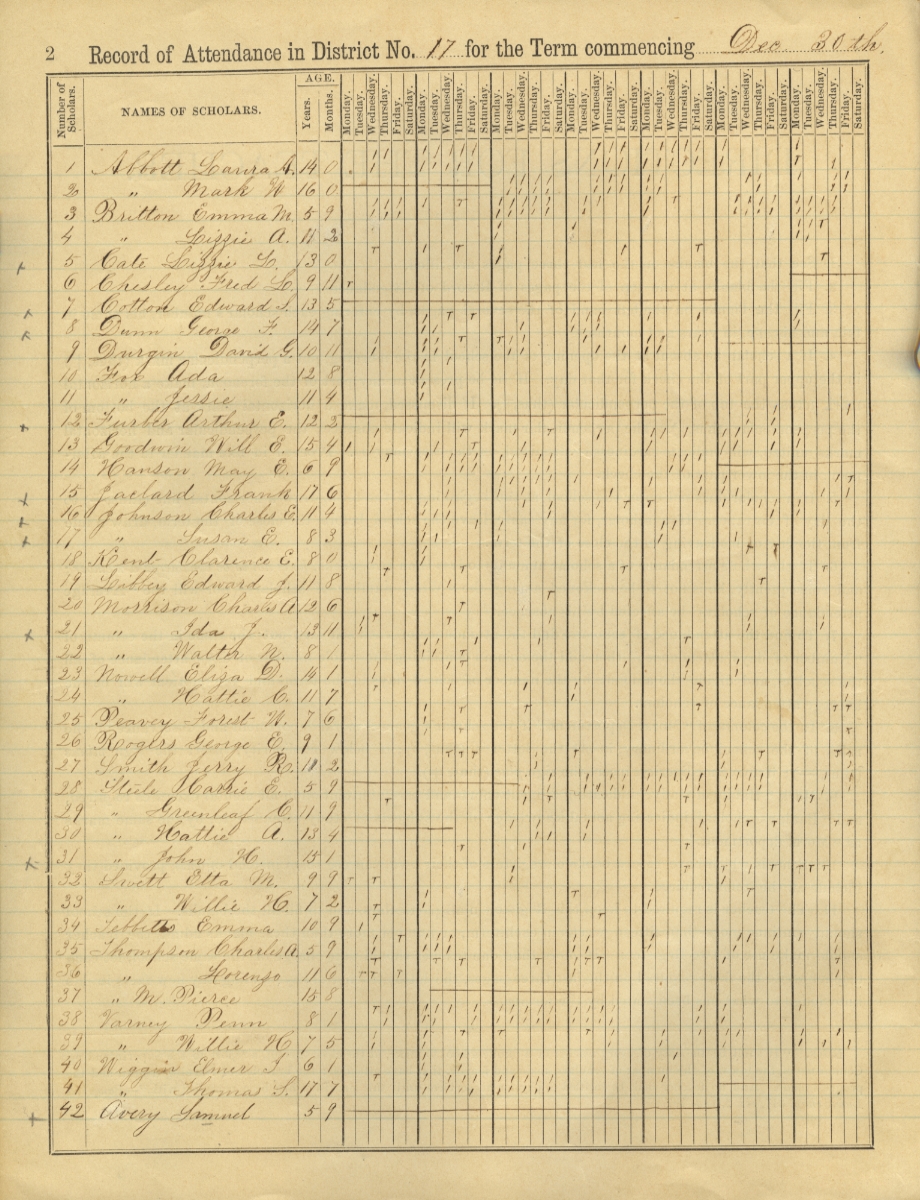 2 Record of Attendance in District No. 17 for the Term commencing Dec 30th.
Number of Scholars. NAMES OF SCHOLARS. AGE. Years. Months. Monday. Tuesday. Wednesday. Thursday. Friday. Saturday. Monday. Tuesday. Wednesday. Thursday. Friday. Saturday. Monday. Tuesday. Wednesday. Thursday. Friday. Saturday. Monday. Tuesday. Wednesday. Thursday. Friday. Saturday. Monday. Tuesday. Wednesday. Thursday. Friday. Saturday. Monday. Tuesday. Wednesday. Thursday. Friday. Saturday. Monday. Tuesday. Wednesday. Thursday. Friday. Saturday.
1 Abbott Laura A. 14 0
2 " Mark W 16 0
3 Britton Emma M. 5 9
4 " Lizzie A. 11 2
5 Cate Lizzie L. 13 0
6 Chesley Fred L. 9 11
7 Cotton Edward S. 13 5
8 Dunn George F. 14 7
9 Durgin David G. 10 11
10 Fox Ada 12 8
11 " Jessie 11 4
12 Furber Arthur E. 12 2
13 Goodwin Will E. 15 4
14 Hanson May E. 6 9
15 Jaclard Frank 17 6
16 Johnson Charles E. 11 4
17 " Susan E. 8 3
18 Kent Clarence E. 8 0
19 Libbey Edward J. 11 8
20 Morrison Charles A 12 6
21 " Ida J. 13 11
22 " Walter N. 8 1
23 Nowell Eliza D. 14 1
24 " Hattie C. 11 7
25 Peavey Forest W. 7 6
26 Rogers George E. 9 1
27 Smith Jerry R. 2
28 Steele Carrie E. 5 9
29 " Greenleaf C. 11 9
30 " Hattie A. 13 4
31 " John H. 15 1
32 Swett Etta M. 9 9
33 " Willie H. 7 2
34 Tebbetts Emma 10 9
35 Thompson Charles A. 5 9
36 " Lorenzo 11 6
37 " M. Pierce 15 8
38 Varney Penn 8 1
39 " Willie H 7 5
40 Wiggin Elmer 6 1
41 " Thomas S. 17 7
42 Avery Samuel 5 9